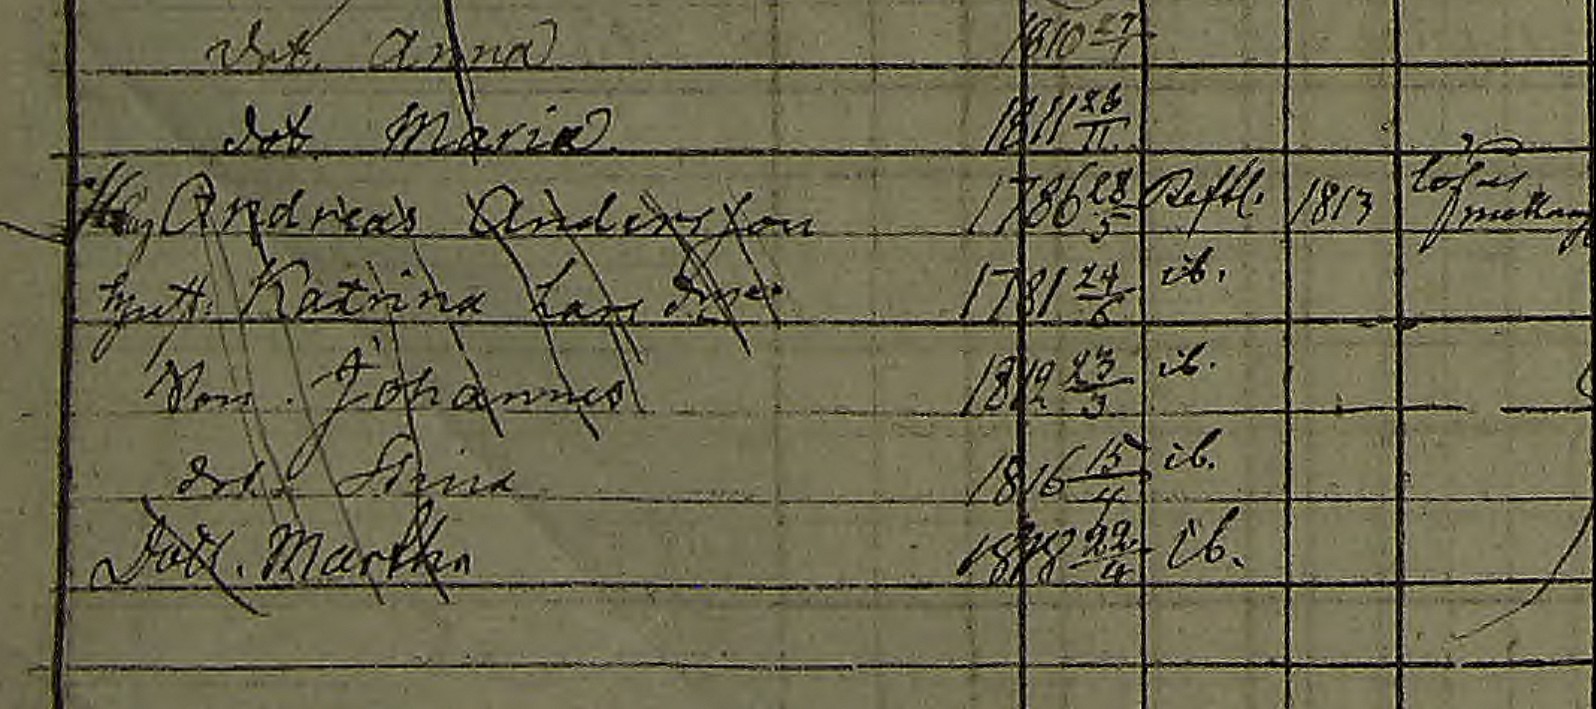 dot. Anna 1810 27/1
dot Maria 1811 26/11
Andreas Andersson 1786 28/5 1813
hust. Katrina Lars dotter 1781 24/6 ib.
Son. Johannes 1812 23/3 ib.
dot. Stina 1816 15/4 ib.
Dott. Martha 1818 22/4 ib.